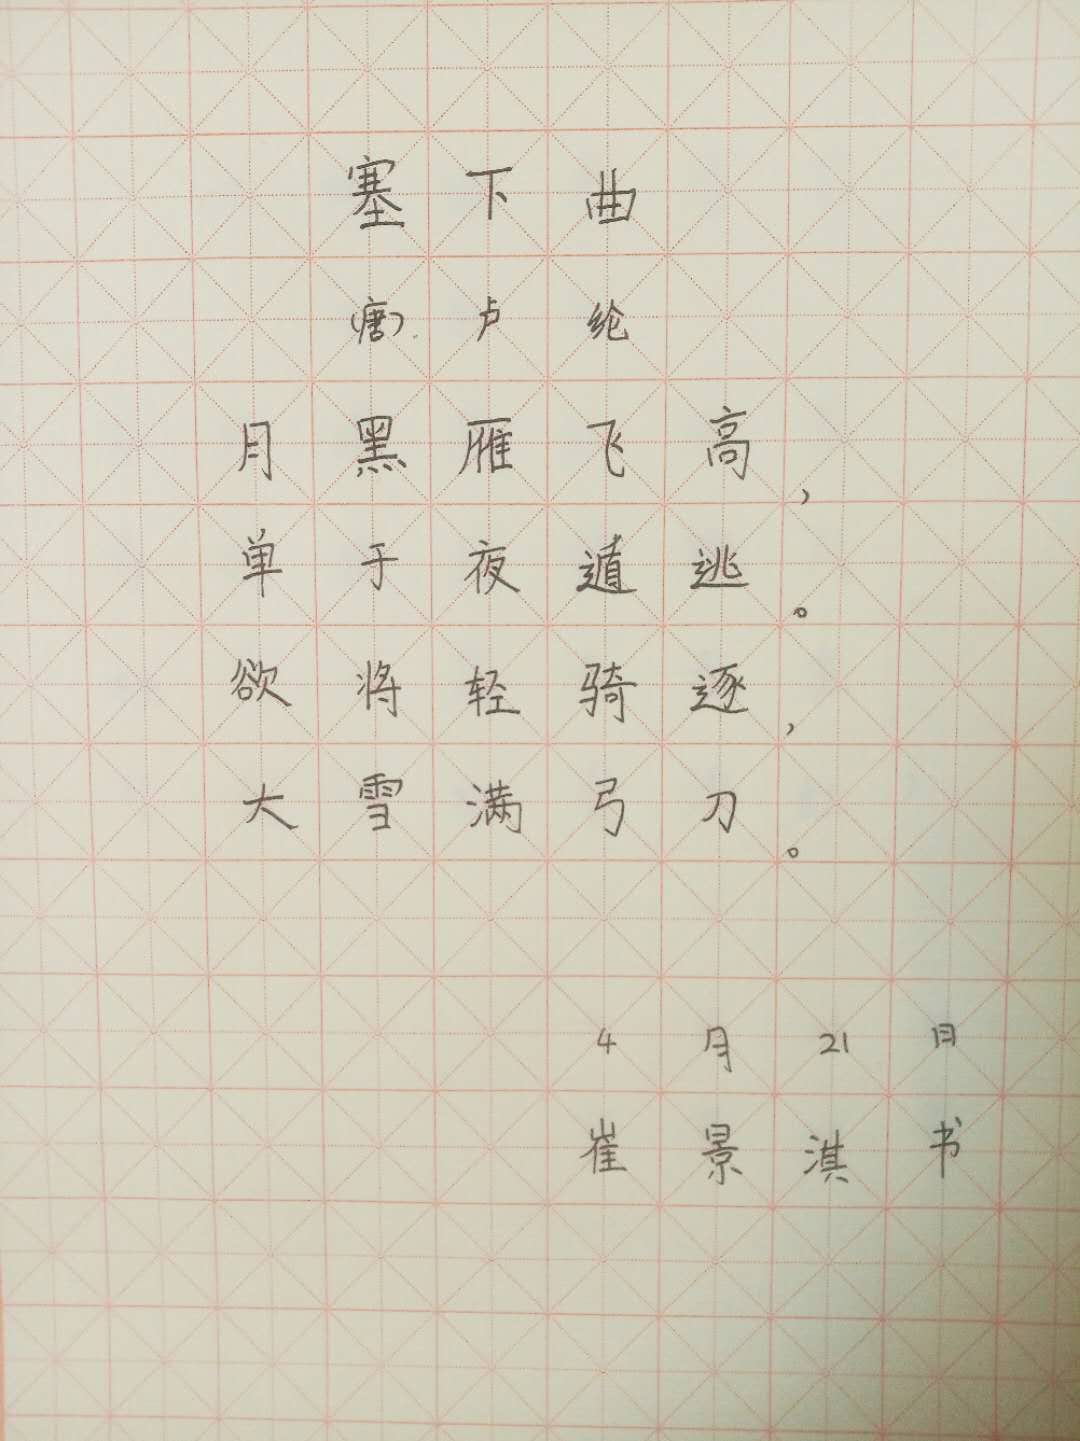 塞下曲
(唐)卢纶
月黑雁飞高，
单于夜遁逃。
欲将轻骑逐，
大雪满弓刀。
4月21日
崔景淇书